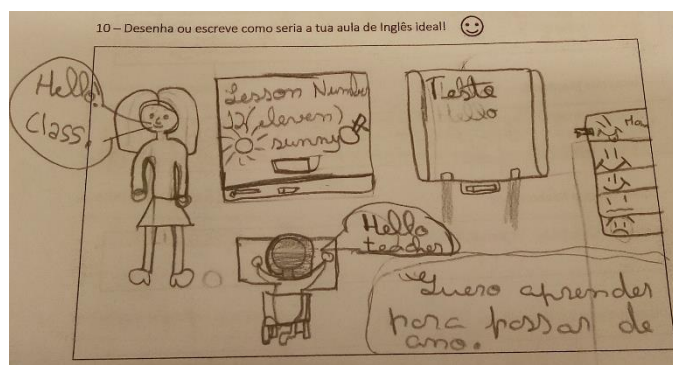 10 – Desenha ou escreve como seria a tua aula de Inglês ideal!
Hello!
Class
Lesson Number
12 (eleven)
sunny
Teste
Hello
Hello
teacher
"Quero aprender
para passar de
ano.